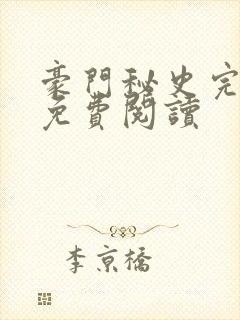 豪門秘史完
免費閱讀
李京橋